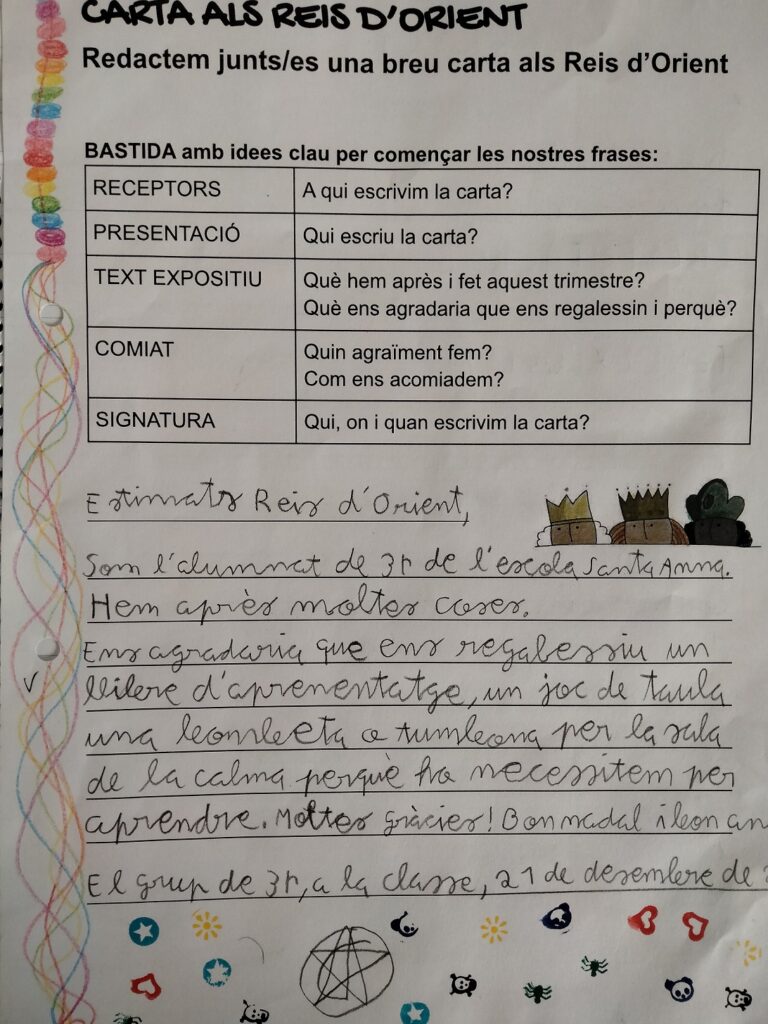 CARTA ALS REIS D'ORIENT
Redactem junts/es una breu carta als Reis d'Orient
BASTIDA amb idees clau per començar les nostres frases:
RECEPTORS A qui escrivim la carta?
PRESENTACIÓ Qui escriu la carta?
TEXT EXPOSITIU Què hem après i fet aquest trimestre?
Què ens agradaria que ens regalessin i perquè?
COMIAT Quin agraïment fem?
Com ens acomiadem?
SIGNATURA Qui, on i quan escrivim la carta?
Estimats Reis d'Orient,
Som l'alumnat de 3r de l'escola Santa Anna.
Hem après moltes coses.
Ens agradaria que ens regalessiu un
llibre d'aprenentatge, un joc de taula
una bombeta o tumbona per la sala
de la calma perquè ho necessitem per
aprendre. Moltes gràcies! Bon nadal i bon an
El grup de 3r, a la classe, 21 de desembre de